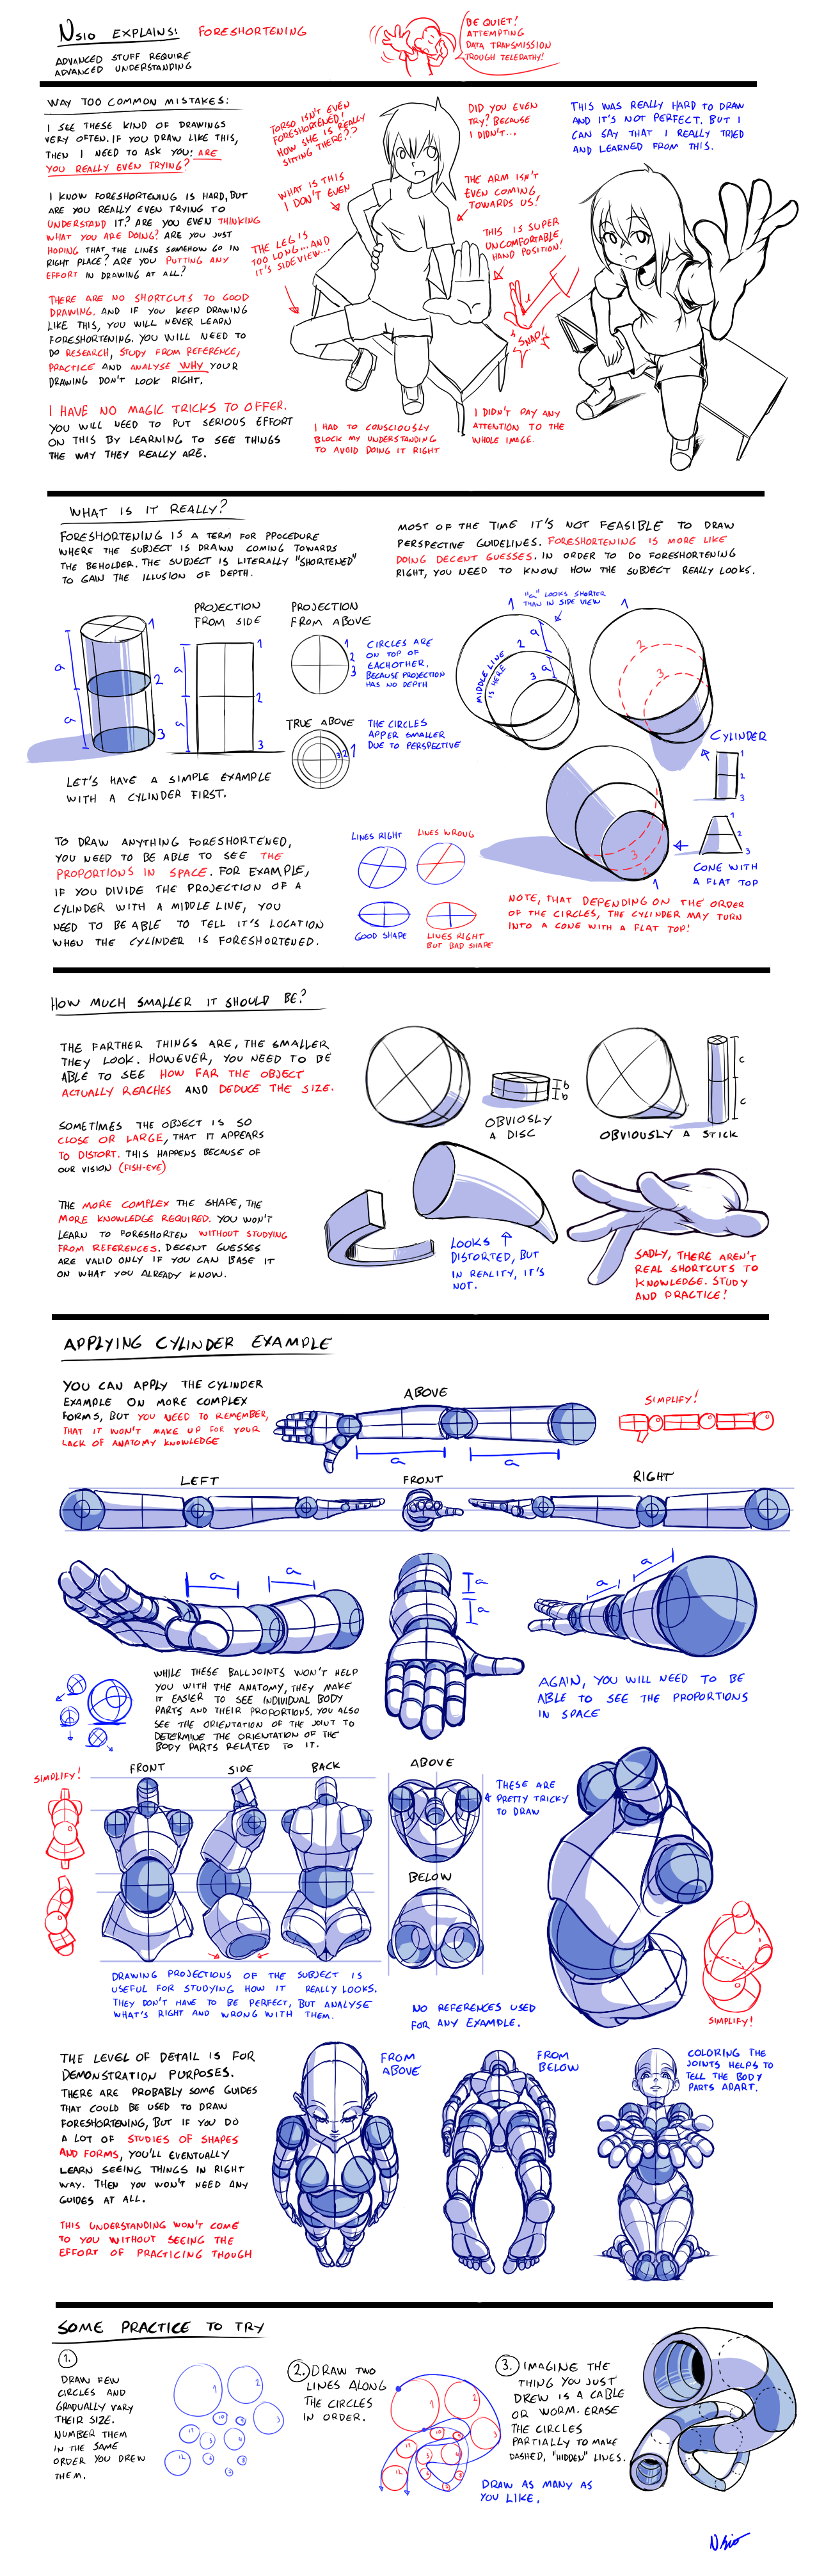 Nsio EXPLAINS: FORESHORTENING
ADVANCED STUFF REQUIRE
ADVANCED UNDERSTANDING
BE QUIET!
ATTEMPTING
DATA TRANSMISSION
TROUGH TELEPATHY!
WAY TOO COMMON MISTAKES:
I SEE THESE KIND OF DRAWINGS
VERY OFTEN. IF YOU DRAW LIKE THIS,
THEN I NEED TO ASK YOU: ARE
YOU REALLY EVEN TRYING?
I KNOW FORESHORTENING IS HARD, BUT
ARE YOU REALLY EVEN TRYING TO
UNDERSTAND IT? ARE YOU EVEN THINKING
WHAT YOU ARE DOING? ARE YOU JUST
HOPING THAT THE LINES SOMEHOW GO IN
RIGHT PLACE? ARE YOU PUTTING ANY
EFFORT IN DRAWING AT ALL?
THERE ARE NO SHORTCUTS TO GOOD
DRAWING. AND IF YOU KEEP DRAWING
LIKE THIS, YOU WILL NEVER LEARN
FORESHORTENING. YOU WILL NEED TO
DO RESEARCH, STUDY FROM REFERENCE,
PRACTICE AND ANALYSE WHY YOUR
DRAWING DON'T LOOK RIGHT.
I HAVE NO MAGIC TRICKS TO OFFER.
YOU WILL NEED TO PUT SERIOUS EFFORT
ON THIS BY LEARNING TO SEE THINGS
THE WAY THEY REALLY ARE.
TORSO ISN'T EVEN
FORESHORTENED!
HOW SHE IS REALLY
SITTING THERE??
WHAT IS THIS
I DON'T EVEN
THE LEG IS
TOO LONG...AND
IT'S SIDEVIEW...
DID YOU EVEN
TRY? BECAUSE
I DIDN'T...
THE ARM ISN'T
EVEN COMING
TOWARDS US!
THIS IS SUPER
UNCOMFORTABLE
HAND POSITION!
SNAP!
I HAD TO CONSCIOUSLY
BLOCK MY UNDERSTANDING
TO AVOID DOING IT RIGHT
I DIDN'T PAY ANY
ATTENTION TO THE
WHOLE IMAGE.
THIS WAS REALLY HARD TO DRAW
AND IT'S NOT PERFECT. BUT I
CAN SAY THAT I REALLY TRIED
AND LEARNED FROM THIS.
WHAT IS IT REALLY?
FORESHORTENING IS A TERM FOR PPOCEDURE
WHERE THE SUBJECT IS DRAWN COMING TOWARDS
THE BEHOLDER. THE SUBJECT IS LITERALLY "SHORTENED"
TO GAIN THE ILLUSION OF DEPTH.
MOST OF THE TIME IT'S NOT FEASIBLE TO DRAW
PERSPECTIVE GUIDELINES. FORESHORTENING IS MORE LIKE
DOING DECENT GUESSES. IN ORDER TO DO FORESHORTENING
RIGHT, YOU NEED TO KNOW HOW THE SUBJECT REALLY LOOKS.
a
a
1
2
3
PROJECTION
FROM SIDE
a
a
1
2
3
PROJECTION
FROM ABOVE
1
2
3
CIRCLES ARE
ON TOP OF
EACHOTHER,
BECAUSE PROJECTION
HAS NO DEPTH
TRUE ABOVE
3 2 1
THE CIRCLES
APPER SMALLER
DUE TO PERSPECTIVE
LET'S HAVE A SIMPLE EXAMPLE
WITH A CYLINDER FIRST.
"a" LOOKS SHORTER
THAN IN SIDE VIEW
1
2
3
a
a
MIDDLE LINE
IS HERE
1
2
3
CYLINDER
1
2
3
1
2
3
CONE WITH
A FLAT TOP
3
2
1
TO DRAW ANYTHING FORESHORTENED,
YOU NEED TO BE ABLE TO SEE THE
PROPORTIONS IN SPACE. FOR EXAMPLE,
IF YOU DIVIDE THE PROJECTION OF A
CYLINDER WITH A MIDDLE LINE, YOU
NEED TO BE ABLE TO TELL IT'S LOCATION
WHEN THE CYLINDER IS FORESHORTENED.
LINES RIGHT
LINES WROUG
GOOD SHAPE
LINES RIGHT
BUT BAD SHAPE
NOTE, THAT DEPENDING ON THE ORDER
OF THE CIRCLES, THE CYLINDER MAY TURN
INTO A CONE WITH A FLAT TOP!
HOW MUCH SMALLER IT SHOULD BE?
THE FARTHER THINGS ARE, THE SMALLER
THEY LOOK. HOWEVER, YOU NEED TO BE
ABLE TO SEE HOW FAR THE OBJECT
ACTUALLY REACHES AND DEDUCE THE SIZE.
SOMETIMES THE OBJECT IS SO
CLOSE OR LARGE, THAT IT APPEARS
TO DISTORT. THIS HAPPENS BECAUSE OF
OUR VISION (FISH-EYE)
THE MORE COMPLEX THE SHAPE, THE
MORE KNOWLEDGE REQUIRED. YOU WON'T
LEARN TO FORESHORTEN WITHOUT STUDYING
FROM REFERENCES. DECENT GUESSES
ARE VALID ONLY IF YOU CAN BASE IT
ON WHAT YOU ALREADY KNOW.
b
b
OBVIOSLY
A DISC
c
c
OBVIOUSLY A STICK
LOOKS
DISTORTED, BUT
IN REALITY, IT'S
NOT.
SADLY, THERE AREN'T
REAL SHORTCUTS TO
KNOWLEDGE. STUDY
AND PRACTICE!
APPLYING CYLINDER EXAMPLE
YOU CAN APPLY THE CYLINDER
EXAMPLE ON MORE COMPLEX
FORMS, BUT YOU NEED TO REMEMBER,
THAT IT WON'T MAKE UP FOR YOUR
LACK OF ANATOMY KNOWLEDGE
ABOVE
a
a
SIMPLIFY!
LEFT
FRONT
RIGHT
a
a
a
a
a
a
WHILE THESE BALLJOINTS WON'T HELP
YOU WITH THE ANATOMY, THEY MAKE
IT EASIER TO SEE INDIVIDUAL BODY
PARTS AND THEIR PROPORTIONS. YOU ALSO
SEE THE ORIENTATION OF THE JOINT TO
DETERMINE THE ORIENTATION OF THE
BODY PARTS RELATED TO IT.
AGAIN, YOU WILL NEED TO BE
ABLE TO SEE THE PROPORTIONS
IN SPACE
SIMPLIFY!
FRONT
SIDE
BACK
ABOVE
BELOW
THESE ARE
PRETTY TRICKY
TO DRAW
DRAWING PROJECTIONS OF THE SUBJECT IS
USEFUL FOR STUDYING HOW IT REALLY LOOKS.
THEY DON'T HAVE TO BE PERFECT, BUT ANALYSE
WHAT'S RIGHT AND WRONG WITH THEM.
NO REFERENCES USED
FOR ANY EXAMPLE.
SIMPLIFY!
THE LEVEL OF DETAIL IS FOR
DEMONSTRATION PURPOSES.
THERE ARE PROBABLY SOME GUIDES
THAT COULD BE USED TO DRAW
FORESHORTENING, BUT IF YOU DO
A LOT OF STUDIES OF SHAPES
AND FORMS, YOU'LL EVENTUALLY
LEARN SEEING THINGS IN RIGHT
WAY. THEN YOU WON'T NEED ANY
GUIDES AT ALL.
THIS UNDERSTANDING WON'T COME
TO YOU WITHOUT SEEING THE
EFFORT OF PRACTICING THOUGH
FROM
ABOVE
FROM
BELOW
COLORING THE
JOINTS HELPS TO
TELL THE BODY
PARTS APART.
SOME PRACTICE TO TRY
1.
DRAW FEW
CIRCLES AND
GRADUALLY VARY
THEIR SIZE.
NUMBER THEM
IN THE SAME
ORDER YOU DREW
THEM.
2. DRAW TWO
LINES ALONG
THE CIRCLES
IN ORDER.
3. IMAGINE THE
THING YOU JUST
DREW IS A CABLE
OR WORM. ERASE
THE CIRCLES
PARTIALLY TO MAKE
DASHED, "HIDDEN" LINES.
DRAW AS MANY AS
YOU LIKE.
Nsio